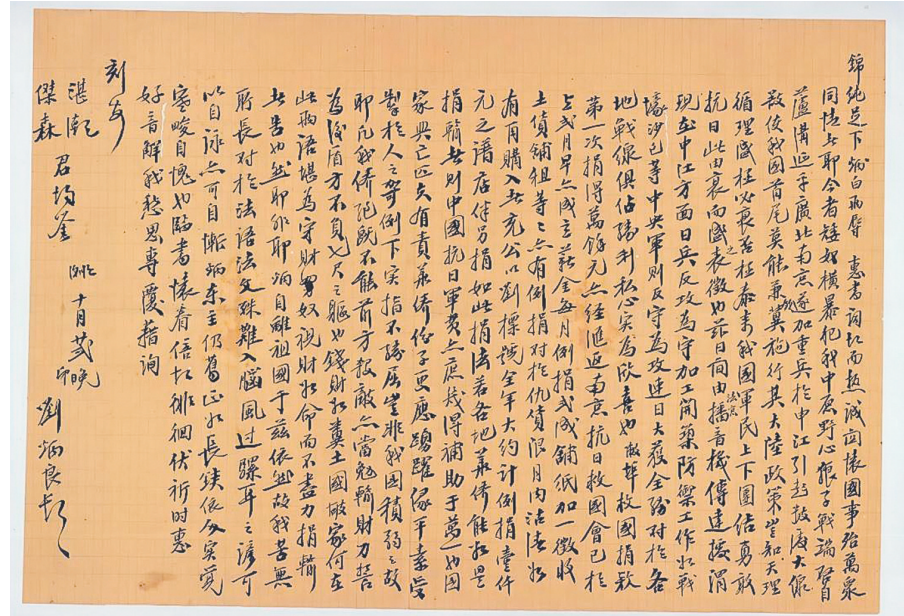 錦純足下炳白兩辱 惠書詞切而熱誠關懷國事殆萬眾
同情者耶今者矮奴橫暴犯我中原野心狼子戰端啓自
蘆溝延平廣北南京遂加重兵於申江引起致渡大佩
敵使我國首尾莫能兼冀施行其大陸政策豈知天理
循理盛極必衰否極泰來我國軍民上下團结勇敢
抗日此由衰而盛之表徵也茲日间由播音機傳達援渭
現在申江方面日兵反攻為守加工開築防禦工作水戰
壕沙包等中央軍則反守為攻連日大獲全勝對於各
地戰線俱佔勝利私心實為欣喜也敝埠救國捐款
第一次捐得萬餘元亦經匯返南京抗日救國會已於
上弍月早亦國立薪金每月例捐弍成舖纸加一徵收
土債舖租等亦有例捐對於仇債限月内沽清如
有用購入者充公以劉標號全年大約計例捐壹仟
元之譜店伴另捐如此捐法若各地華僑能如是
捐輸者則中國抗日軍費亦庶幾得補助于萬一也國
家興亡匹夫有責華僑份子更應踴躍緣平素受
掣於人之苛例下实指不勝屈豈非我國積弱之故
耶凡我僑胞既不能前方殺敵亦當勉輸財力誓
為後盾方不負七尺之軀也錢財如糞土國破家何在
此兩语堪為守財奴視財如命而不盡力捐輸
者告也然耶非耶炳自離祖國于兹依然故我苦無
所長对於法语法文殊難入腦風过騾耳之諺可
以自詠亦可自慚炳东主仍舊
實覺
自愧也臨書懷着倍切徘徊伏祈时惠
好音解我愁思專覆藉詢
刻安
湛乾
傑森 君均鉴
十月弍号晚
劉炳良